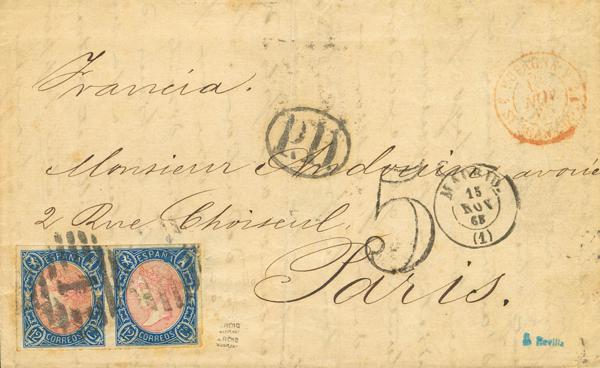 Francia.
P.D.
Monsieur Audouin avoué
2 Rue Choiseul.
Paris.
5
MADRID.
15
NOV
65
(1)
NOV
ESPAÑA
12 CORREOS Cs
ESPAÑA
12 CORREOS Cs
Revilla